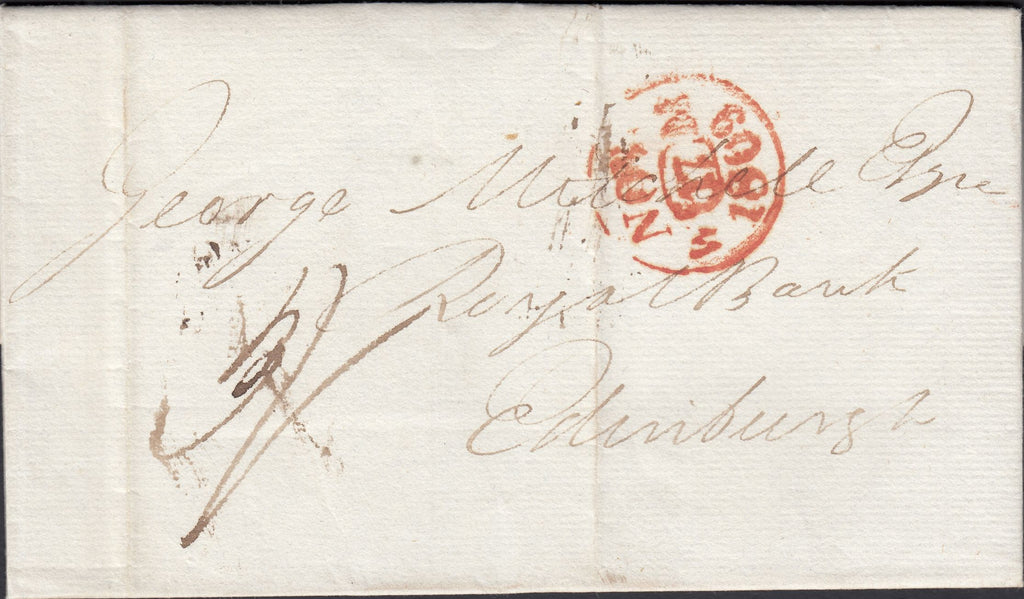 George Mitchell Esqre
Royal Bank
Edinburgh
1809